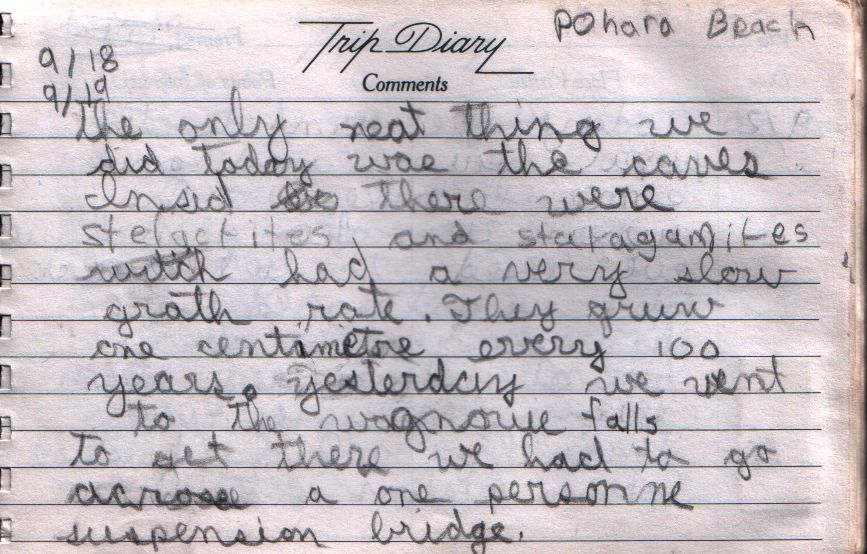 Pohara Beach
Trip Diary
9/18
Comments
9/19
the only neat thing we
did today wae the caves
Insid there were
stelgctites and statagamites
witch had a very slow
grath rate. They gruw
one centimetre every 100
years. yesterday we went
to the wagnowe falls
To get there we had to go
acrosse a one personne
suspension bridge.